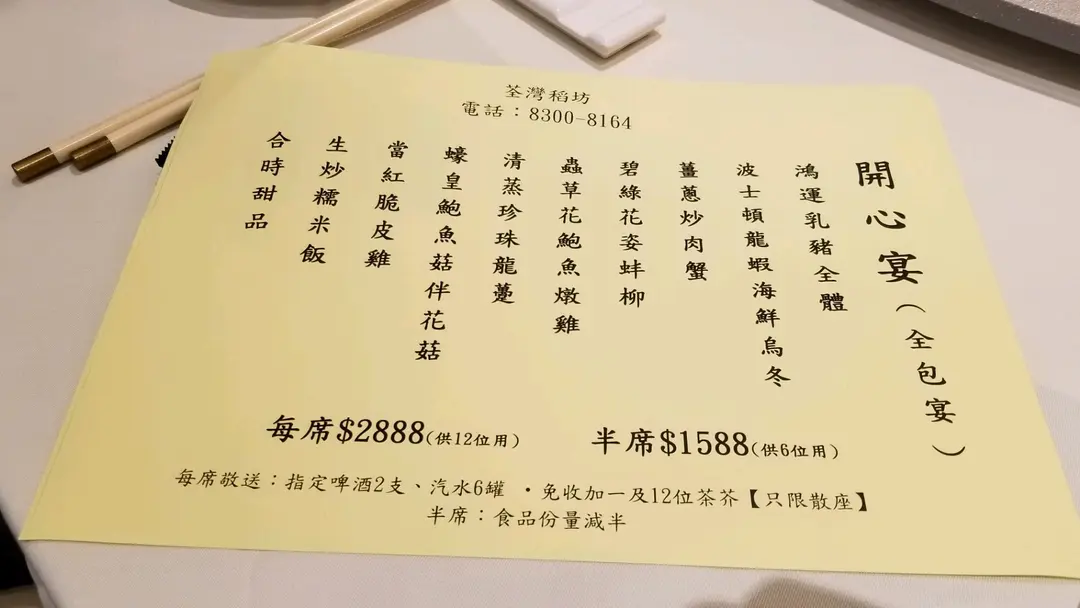 荃灣稻坊
電話：8300-8164
開心宴（全包宴）
鴻運乳豬全體
波士頓龍蝦海鮮烏冬
薑蔥炒肉蟹
碧綠花姿蚌柳
蟲草花鮑魚燉雞
清蒸珍珠龍躉
蠔皇鮑魚菇伴花菇
當紅脆皮雞
生炒糯米飯
合時甜品
每席$2888(供12位用)
半席$1588(供6位用)
每席敬送：指定啤酒2支、汽水6罐 ・免收加一及12位茶芥【只限散座】
半席：食品份量減半